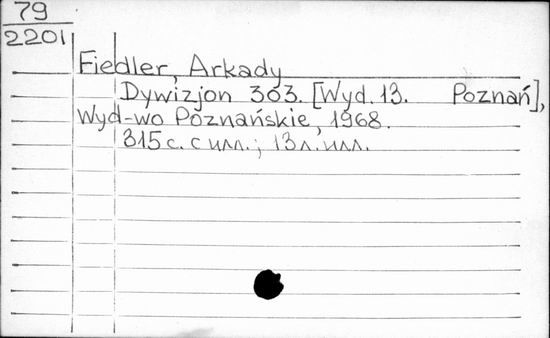 79
2201
Fiedler, Arkady
Dywizjon 303. [Wyd. 13. Poznań],
Wyd-wo Poznańskie, 1968.
315 с. с илл.; 13 л. илл.